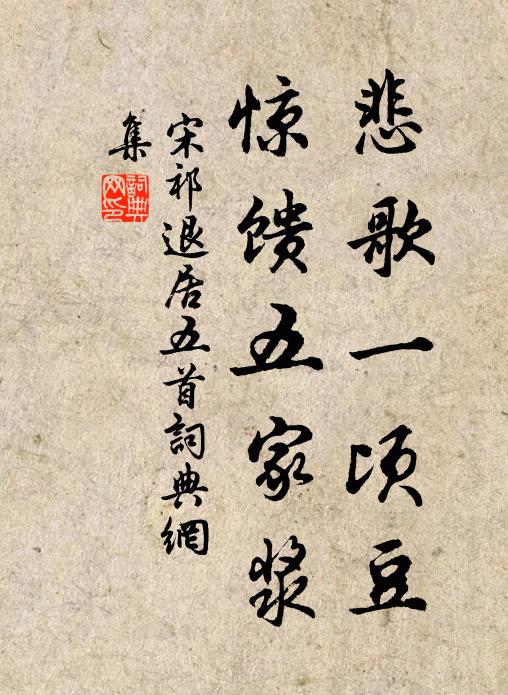 悲歌一顷豆
惊馈五家浆
宋祁退居五首詞典網
集
詞典
网印